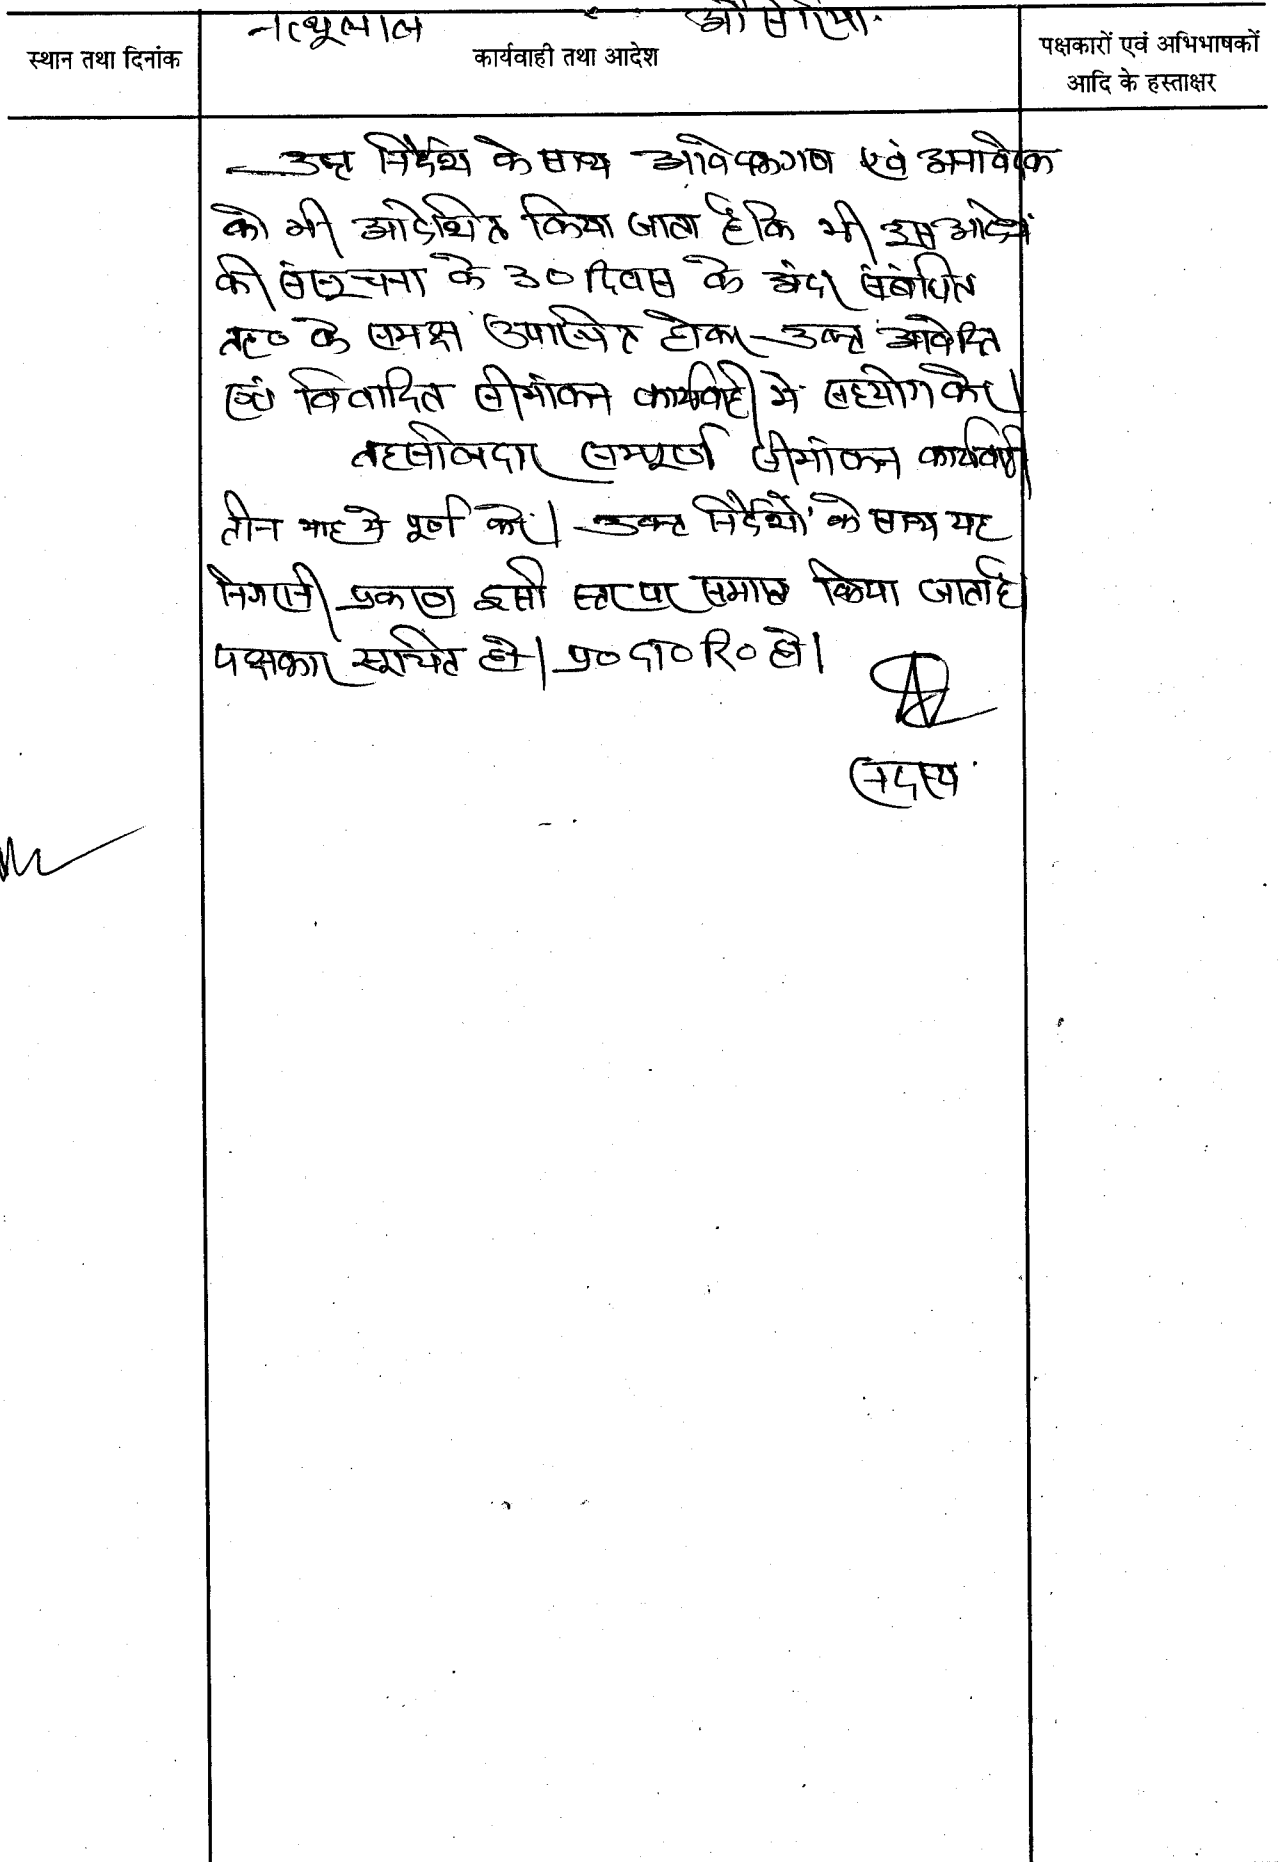 नत्थूलाल
स्थान तथा दिनांक
कार्यवाही तथा आदेश
पक्षकारों एवं अभिभाषकों
आदि के हस्ताक्षर
उक्त निर्देश के साथ आवेदकगण एवं अनावेदक
को भी आदेशित किया जाता है कि भी इस आदेश
की संसूचना के 30 दिवस के अंदर संबंधित
तह0 के समक्ष उपस्थित होकर उक्त आवेदित
एवं विवादित सीमांकन कार्यवाही में सहयोग करें।
तहसीलदार सम्पूर्ण सीमांकन कार्यवाही
तीन माह में पूर्ण करें। उक्त निर्देशों के साथ यह
निगरानी प्रकरण इसी स्तर पर समाप्त किया जाता है
पक्षकार सूचित हो। प्र० दा० रि० हो।
सदस्य